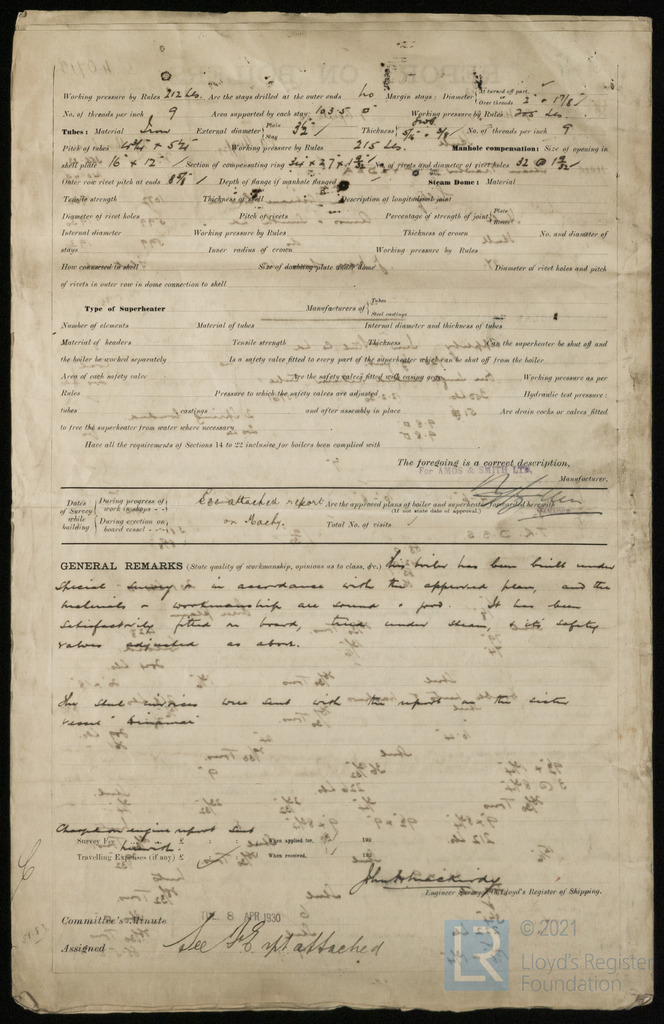 Working pressure by Rules 212 Lbs. Are the stays drilled at the outer ends No Margin stays: Diameter { At turned off part, Over threads 2" & 1 7/8"
No. of threads per inch 9 Area supported by each stay Working pressure by Rules Lbs.
Tubes: Material Iron External diameter { Plain Stay 3½" Thickness { No. of threads per inch 9
Pitch of tubes Working pressure by Rules 215 Lbs. Manhole compensation: Size of opening in
shell plate 16" x 12" Section of compensating ring No. of rivets and diameter of rivet holes 32 @
Outer row rivet pitch at ends Depth of flange if manhole flanged Steam Dome: Material
Tensile strength Thickness of shell Description of longitudinal joint
Diameter of rivet holes Pitch of rivets Percentage of strength of joint { Plate Rivets
Internal diameter Working pressure by Rules Thickness of crown No. and diameter of
stays Inner radius of crown Working pressure by Rules
How connected to shell Size of doubling plate under dome Diameter of rivet holes and pitch
of rivets in outer row in dome connection to shell
Type of Superheater Manufacturers of { Tubes Steel castings
Number of elements Material of tubes Internal diameter and thickness of tubes
Material of headers Tensile strength Thickness Can the superheater be shut off and
the boiler be worked separately Is a safety valve fitted to every part of the superheater which can be shut off from the boiler
Area of each safety valve Are the safety valves fitted with easing gear Working pressure as per
Rules Pressure to which the safety valves are adjusted Hydraulic test pressure:
tubes castings and after assembly in place Are drain cocks or valves fitted
to free the superheater from water where necessary
Have all the requirements of Sections 14 to 22 inclusive for boilers been complied with
The foregoing is a correct description,
For AMOS & SMITH LTD.
Manufacturer.
Dates of Survey while building { During progress of work in shops - - See attached report Are the approved plans of boiler and superheater forwarded herewith
(If not state date of approval.)
During erection on board vessel - - - on Machy. Total No. of visits
GENERAL REMARKS (State quality of workmanship, opinions as to class, &c.) This boiler has been built under
special survey & in accordance with the approved plan, and the
materials & workmanship are sound & good. It has been
satisfactorily fitted on board, tried under steam, & its safety
valves adjusted as above.
The steel invoices were sent with the report on the sister
vessel
Charged on engine report sent
Survey Fee £ herewith : : When applied for, 192
Travelling Expenses (if any) £ : : When received, 192
Engineer Surveyor to Lloyd's Register of Shipping.
Committee's Minute TUE. 8 APR 1930
Assigned See F.E. rpt attached
LR
© 2021
Lloyd's Register
Foundation